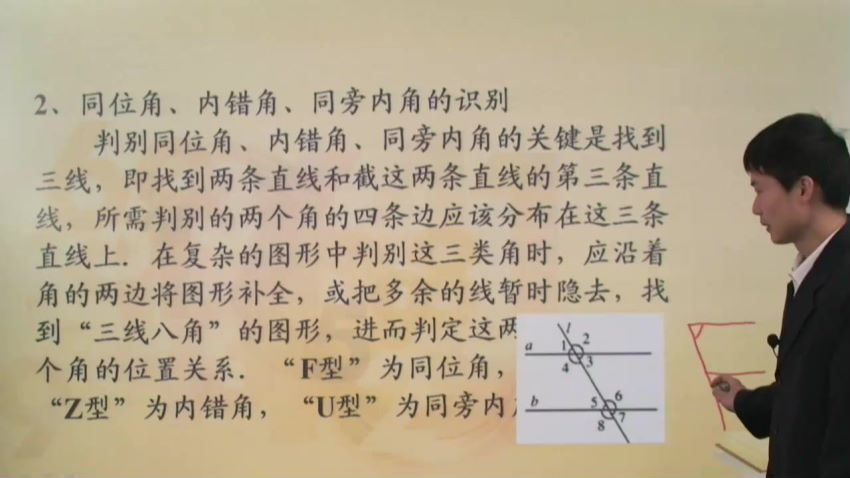 2、同位角、内错角、同旁内角的识别
判别同位角、内错角、同旁内角的关键是找到
三线，即找到两条直线和截这两条直线的第三条直
线，所需判别的两个角的四条边应该分布在这三条
直线上．在复杂的图形中判别这三类角时，应沿着
角的两边将图形补全，或把多余的线暂时隐去，找
到“三线八角”的图形，进而判定这两
个角的位置关系．“F型”为同位角，
“Z型”为内错角，“U型”为同旁内
l
a 1 2
4 3
b 5 6
8 7